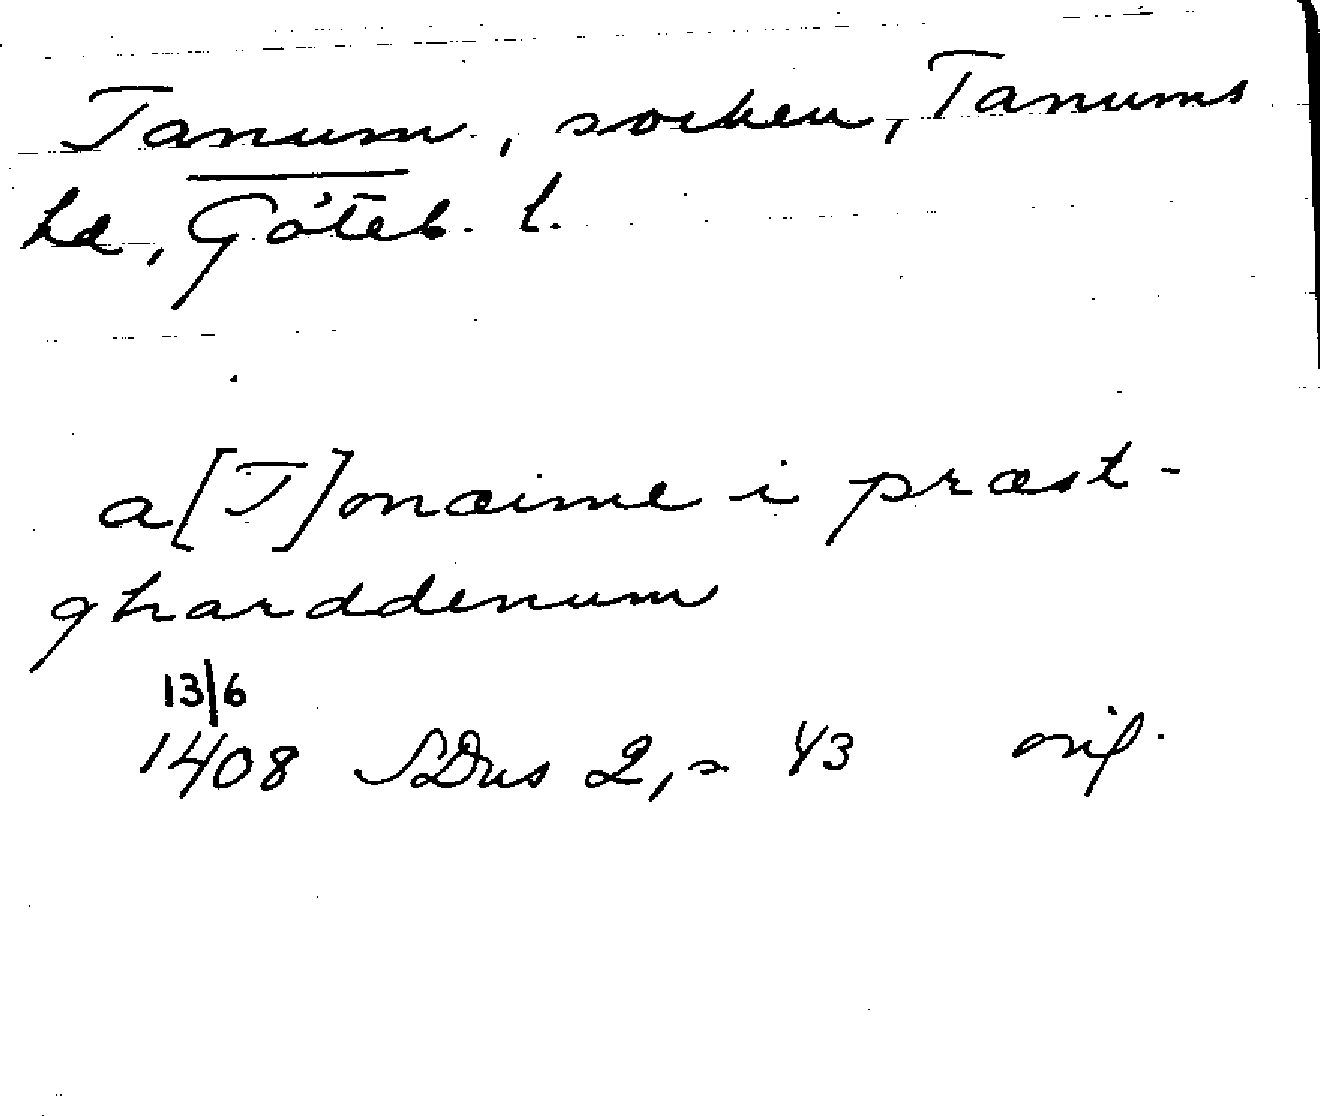 Tanum, socken, Tanums
hd, Göteb. l.
a[T]onæime i præst-
gharddenum
13/6
1408 SDns 2, s 43 orig.